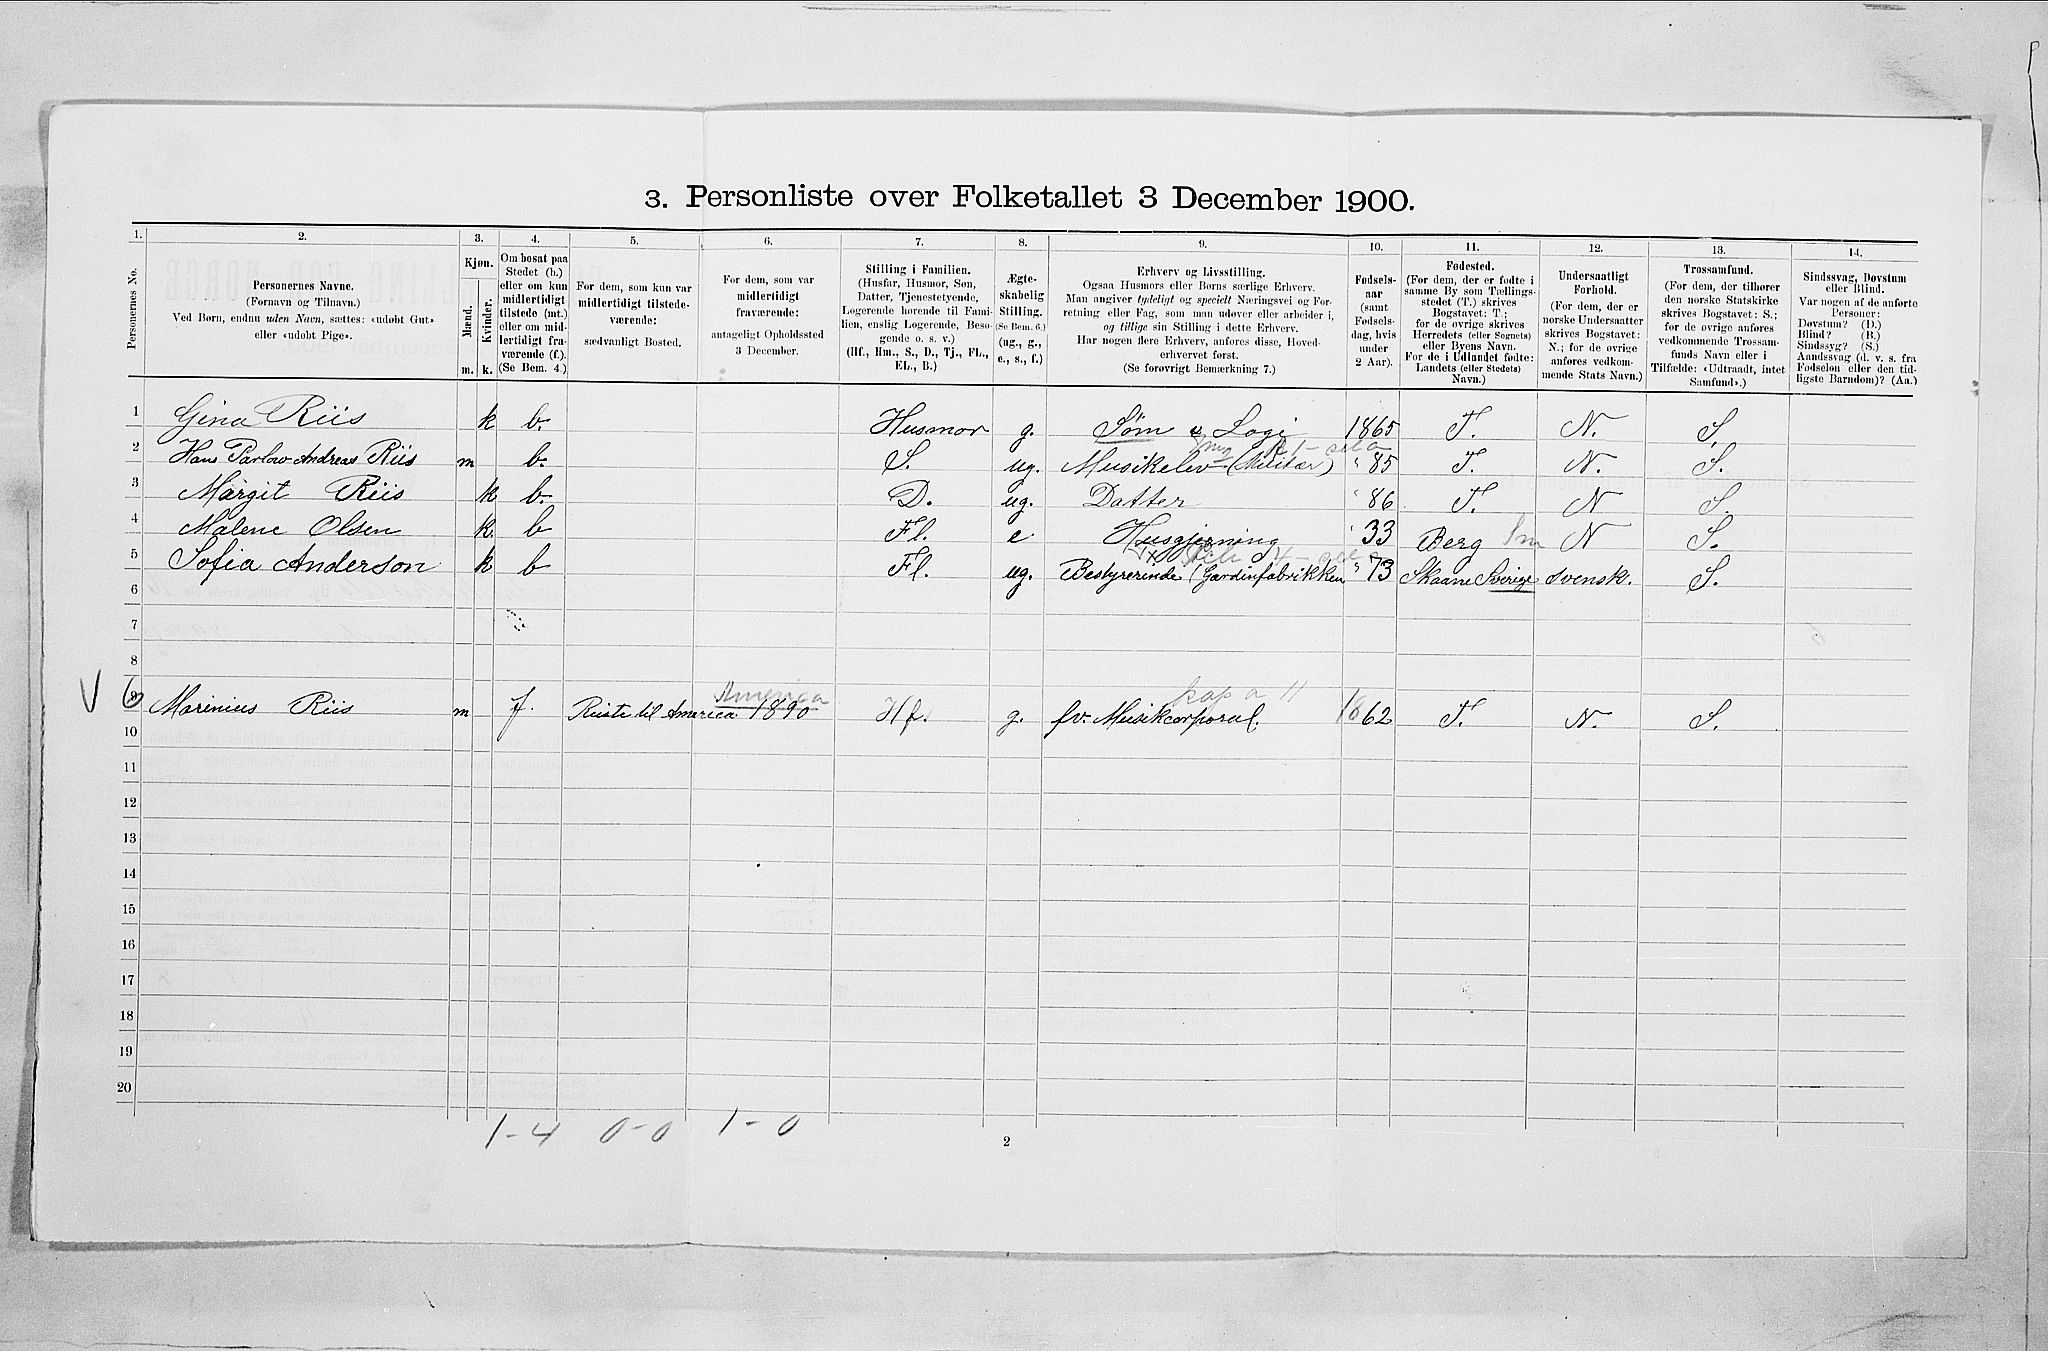 3. Personliste over Folketallet 3 December 1900.
1. 2. 3. 4. 5. 6. 7. 8. 9. 10. 11. 12. 13. 14.
Personernes No.
Personernes Navne.
(Fornavn og Tilnavn.)
Ved Børn, endnu uden Navn, sættes: «udøbt Gut»
eller «udøbt Pige».
Kjøn.
Mænd.
Kvinder.
m. k.
Om bosat paa
Stedet (b.)
eller om kun
midlertidigt
tilstede (mt.)
eller om mid-
lertidigt fra-
værende (f.).
(Se Bem. 4.)
For dem, som kun var
midlertidigt tilstede-
værende:
sædvanligt Bosted.
For dem, som var
midlertidigt
fraværende:
antageligt Opholdssted
3 December.
Stilling i Familien.
(Husfar, Husmor, Søn,
Datter, Tjenestetyende,
Logerende hørende til Fami-
lien, enslig Logerende, Besø-
gende o. s. v.)
(Hf., Hm., S., D., Tj., FL.,
EL., B.)
Ægte-
skabelig
Stilling.
(Se Bem. 6.)
(ug., g.,
e., s., f.)
Erhverv og Livsstilling.
Ogsaa Husmors eller Børns særlige Erhverv.
Man angiver tydeligt og specielt Næringsvei og For-
retning eller Fag, som man udøver eller arbeider i,
og tillige sin Stilling i dette Erhverv.
Har nogen flere Erhverv, anføres disse, Hoved-
erhvervet først.
(Se forøvrigt Bemærkning 7.)
Fødsels-
aar
(samt
Fødsels-
dag, hvis
under
2 Aar).
Fødested.
(For dem, der er fødte i
samme By som Tællings-
stedet (T.) skrives
Bogstavet: T.;
for de øvrige skrives
Herredets (eller Sognets)
eller Byens Navn.
For de i Udlandet fødte:
Landets (eller Stedets)
Navn.)
Undersaatligt
Forhold.
(For dem, der er
norske Undersaatter
skrives Bogstavet:
N.; for de øvrige
anføres vedkom-
mende Stats Navn.)
Trossamfund.
(For dem, der tilhører
den norske Statskirke
skrives Bogstavet: S.;
for de øvrige anføres
vedkommende Trossam-
funds Navn eller i
Tilfælde: «Udtraadt, intet
Samfund».)
Sindssvag, Døvstum
eller Blind.
Var nogen af de anførte
Personer:
Døvstum? (D.)
Blind? (B.)
Sindssyg? (S.)
Aandssvag (d. v. s. fra
Fødselen eller den tid-
ligste Barndom)? (Aa.)
1 Gina Riis k b. Husmor g. Søm & Logi 1865 T. N. S.
2 Hans Parlow Andreas Riis m b. S. ug. Musikelev (Militær) " 85 T. N. S.
3 Margit Riis k b. D. ug. Datter " 86 T. N S.
4 Malene Olsen k. b Fl. e. Husgjerning " 33 Berg Sm N S.
5 Sofia Anderson k b Fl. ug. Bestyrerinde (Gardinfabrikken " 73 Skaane Sverige svensk. S.
6
7
8
America
V 6
9 Marinius Riis m f. Reiste til America 1890 Hf. g. fv. Musikcorporal. 1862 T. N. S.
10
11
12
13
14
15
16
17
18
19
20
1-4 0-0 1-0
2